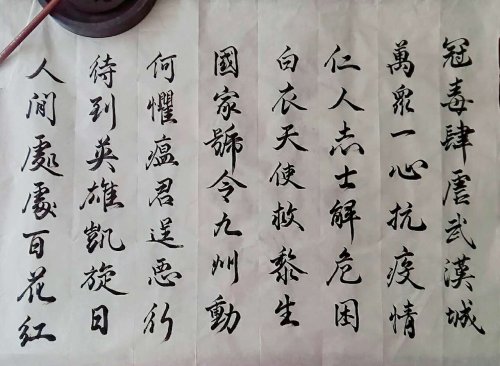 冠毒肆虐武漢城
萬眾一心抗疫情
仁人志士解危困
白衣天使救黎生
國家號令九州動
何懼瘟君逞惡行
待到英雄凱旋日
人間處處百花紅